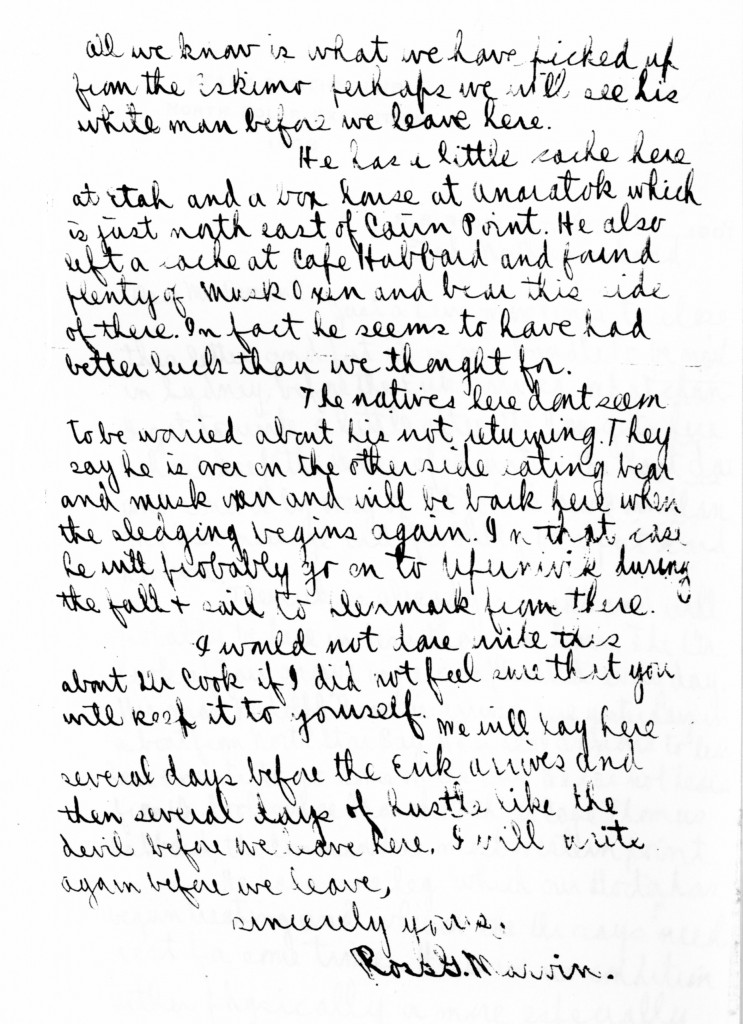 all we know is what we have picked up
from the Eskimo perhaps we will see his
white man before we leave here.
He has a little cache here
at Etah and a box house at Anoratok which
is just north east of Cairn Point. He also
left a cache at Cape Hubbard and found
plenty of Musk Oxen and bear this side
of there. In fact he seems to have had
better luck than we thought for.
The natives here dont seem
to be worried about his not returning. They
say he is over on the other side eating bear
and musk oxen and will be back here when
the sledging begins again. In that case
he will probably go on to Upernivik during
the fall + sail to Denmark from there.
I would not dare write this
about Dr Cook if I did not feel sure that you
will keep it to yourself. We will lay here
several days before the Erik arrives and
then several days of hustle like the
devil before we leave here. I will write
again before we leave,
sincerely yours.
Ross G. Marvin.